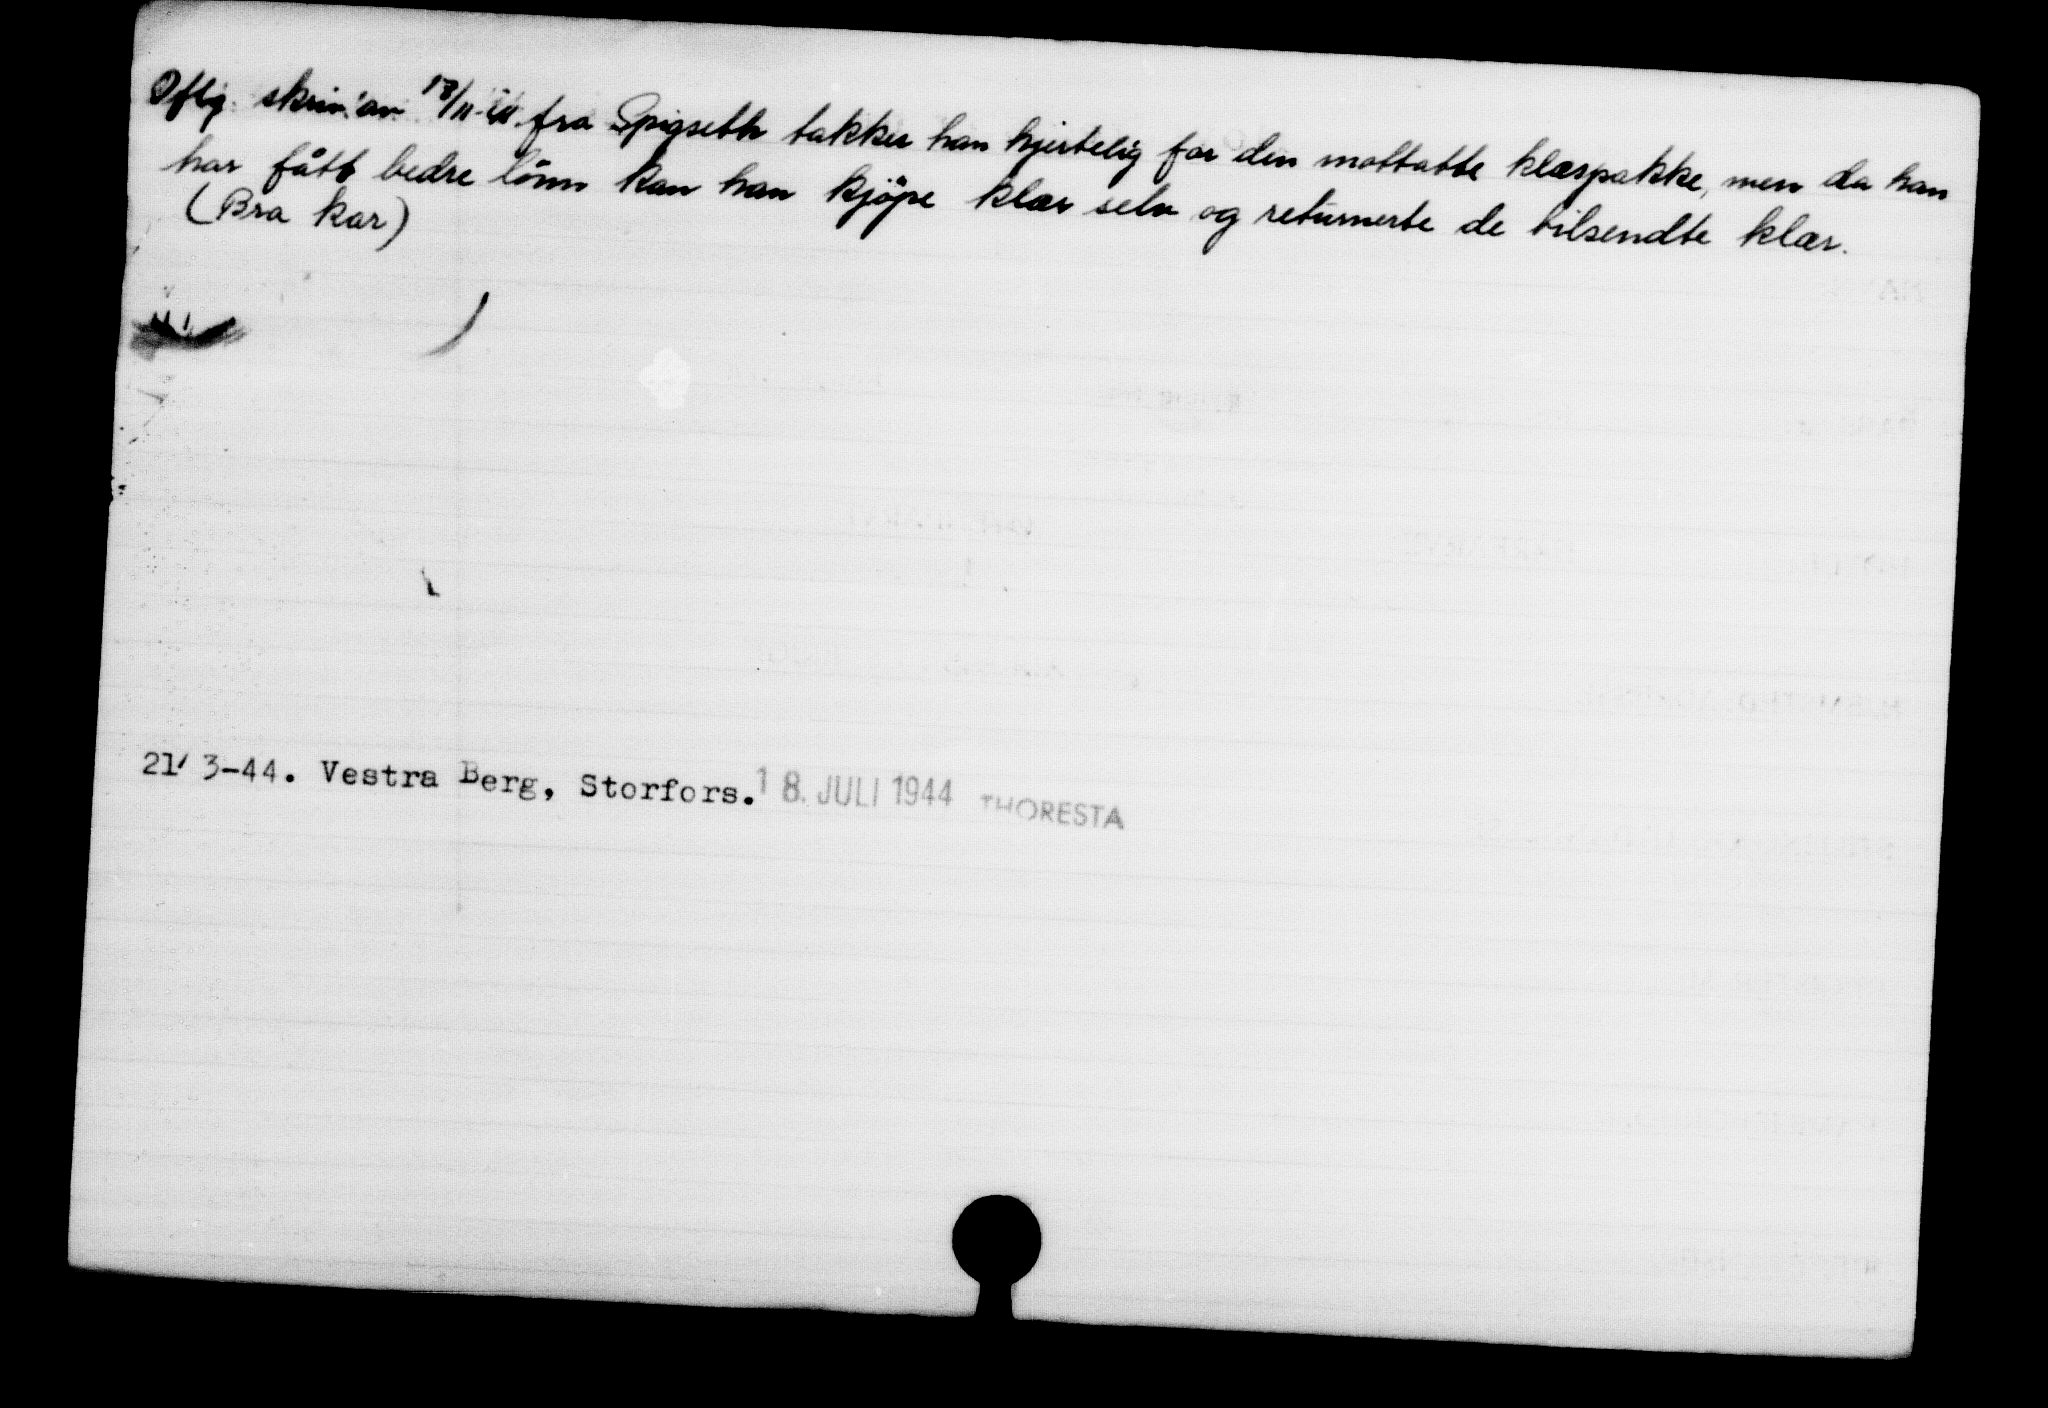 Iflg. skriv. av 13/11-41 fra Spigseth takker han hjertelig for den mottatte klæspakke, men da han
har fått bedre lönn kan han kjöpe klær selv og returnerte de tilsendte klær.
(Bra kar)
21/ 3-44. Vestra Berg, Storfors. 18. JULI 1944 THORESTA